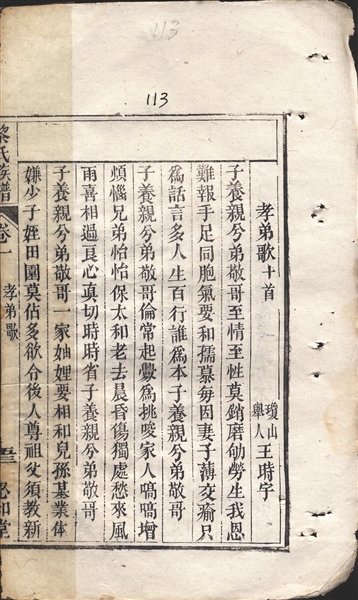 113
113
孝弟歌十首
瓊山
舉人
王時宇
子養親兮弟敬哥至情至性莫銷磨劬勞生我恩
難報手足同胞氣要和孺慕每因妻子薄交瘉只
為話言多人生百行誰為本子養親兮弟敬哥
子養親兮弟敬哥倫常起釁為挑唆家人嗃嗃增
煩惱兄弟怡怡保太和老去晨昏傷獨處愁來風
雨喜相過良心真切時時省子養親兮弟敬哥
子養親兮弟敬哥一家妯娌要相和兒孫基業休
嫌少子姪田園莫佔多欲令後人尊祖父須教新
黎氏族譜
卷一
孝弟歌
必和堂